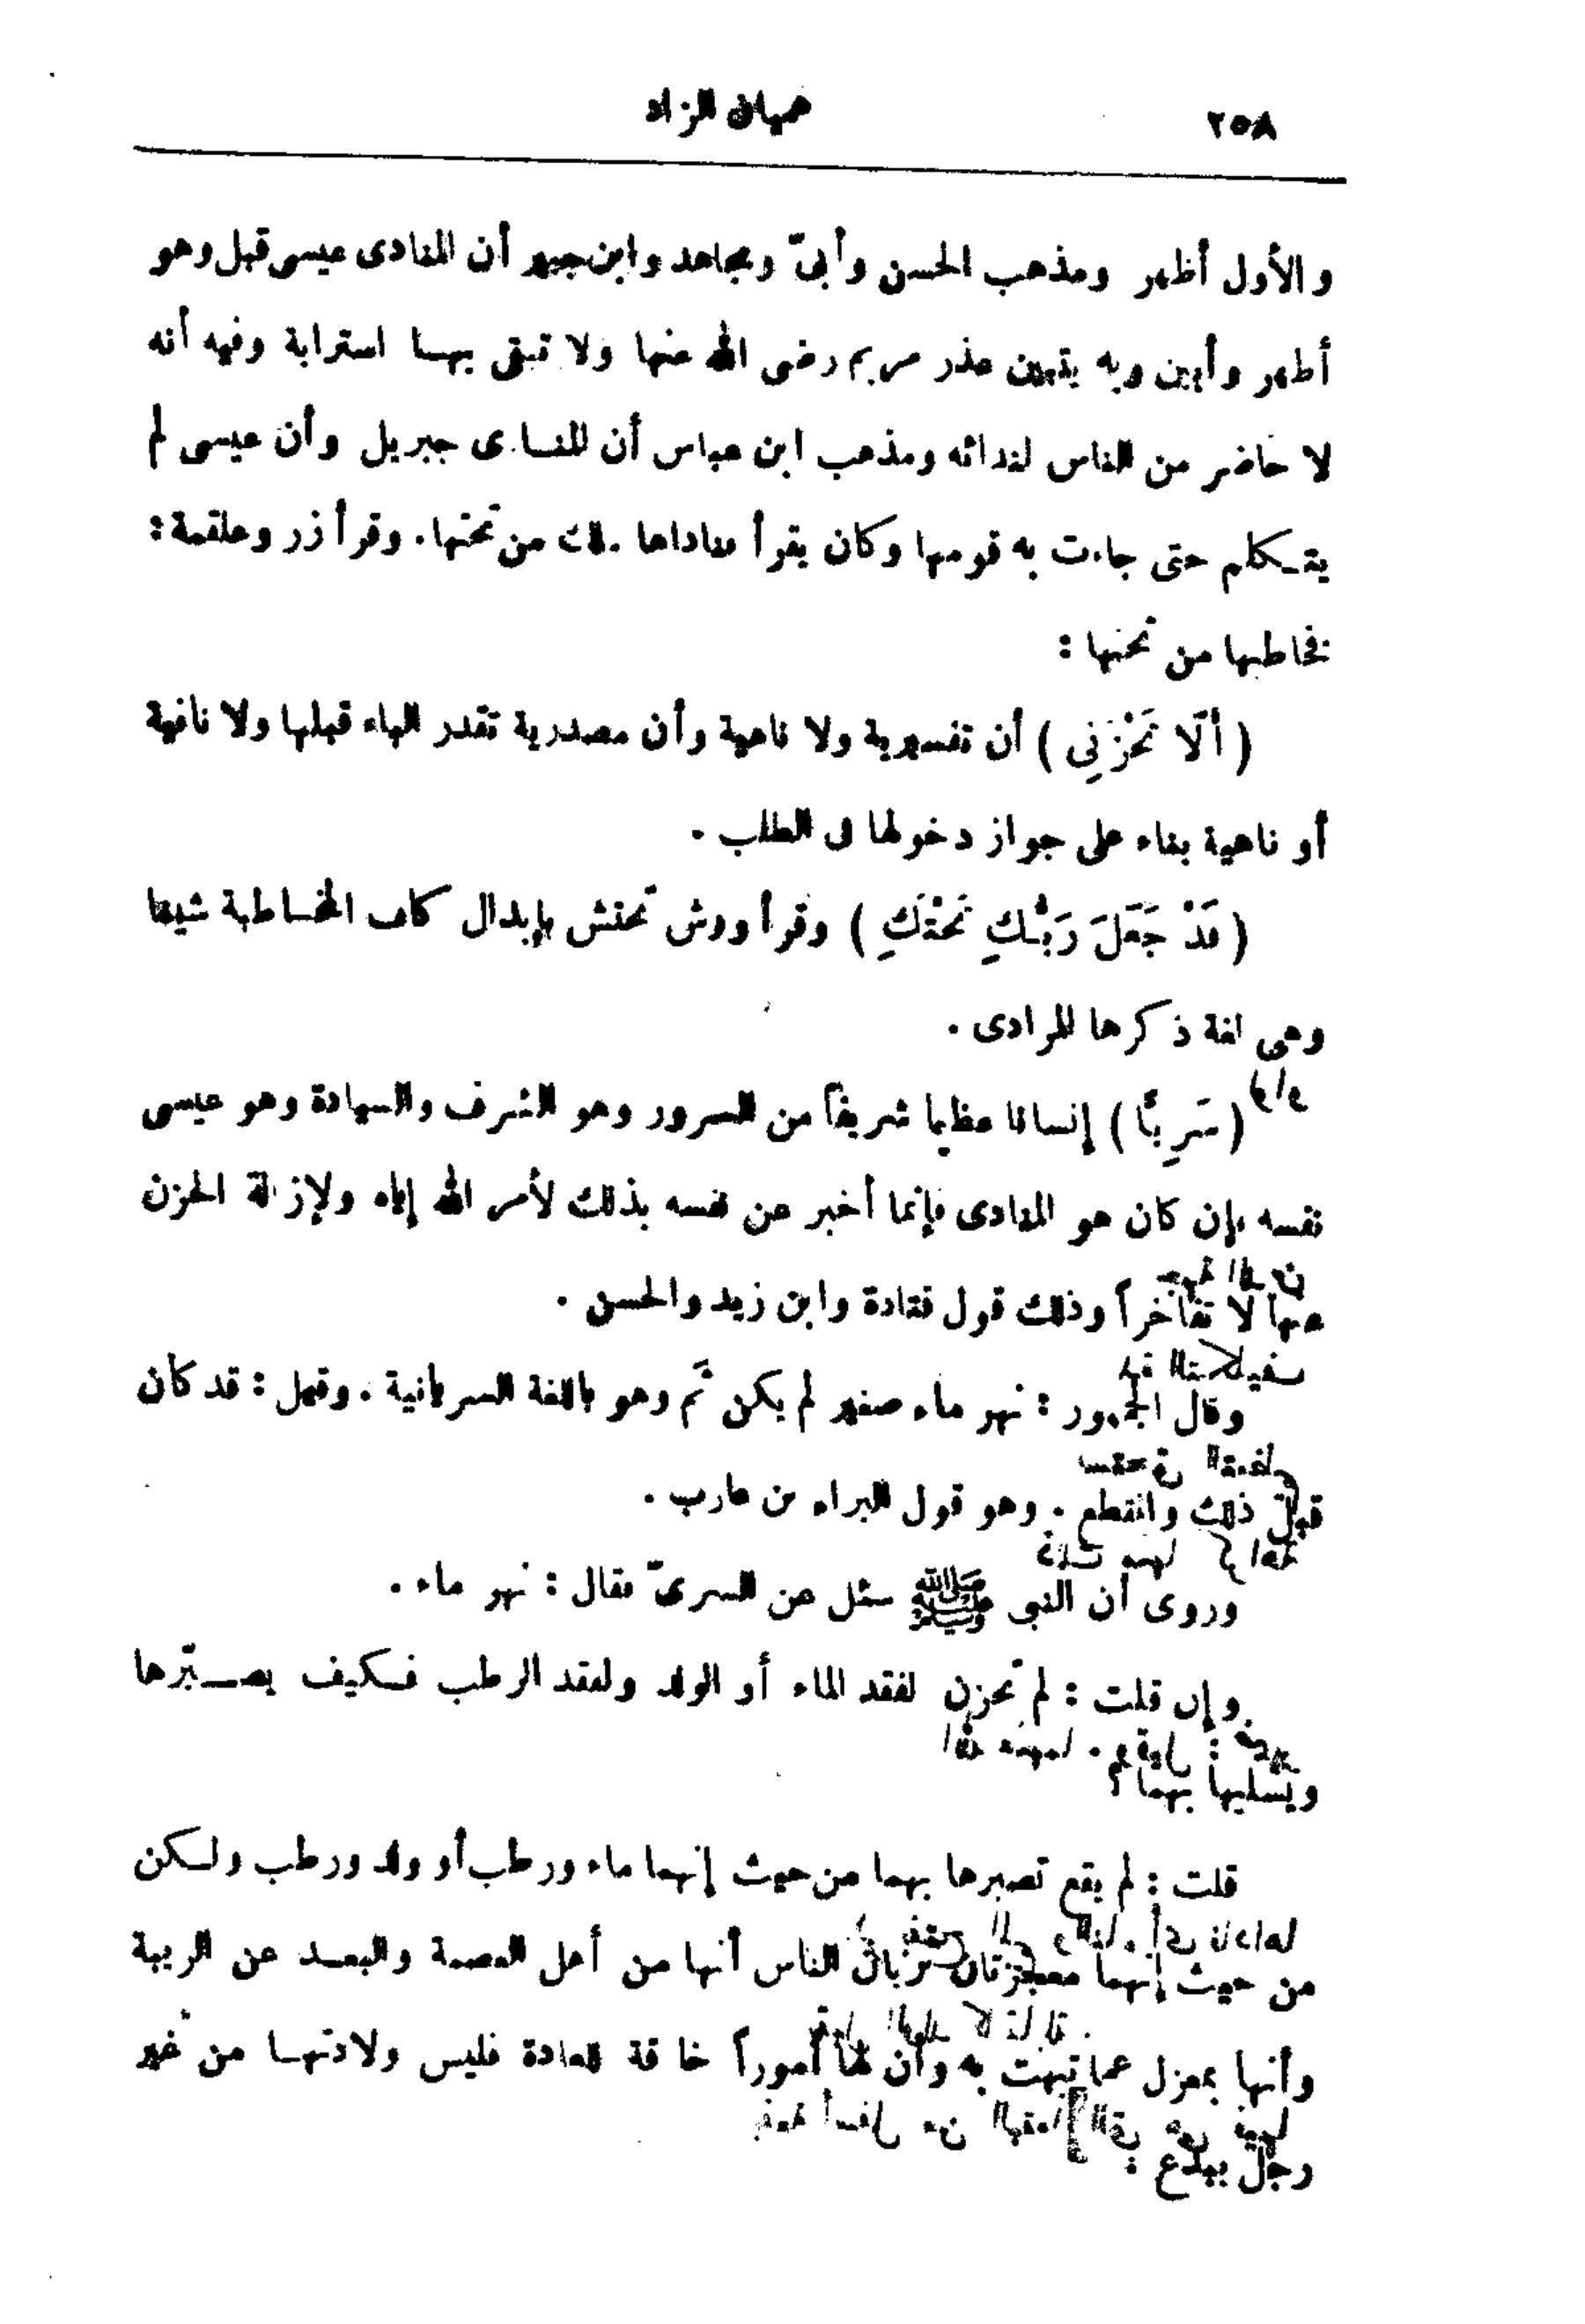 ٢٥٨
هميان الزاد
والأول أظهر ومذهب الحسن وأبىّ ومجاهد وابن جبير أن المنادى عيسى قيل وهو
أظهر وأبين وبه يتبين عذر مريم رضى الله عنها ولا تبقى بهـا استرابة وفيه أنه
لا حاضر من الناس لندائه ومذهب ابن عباس أن المنـادى جبريل وأن عيسى لم
يتـكلم حتى جاءت به قومها وكان يقرأ فناداها ملك من تحتها. وقرأ زر وعلقمة:
فخاطبها من تحتها :
( أَلَّا تَحْزَنِى ) أن تفسيرية ولا ناهية وأن مصدرية تقدر الباء قبلها ولا نافية
أو ناهية بناء على جواز دخولها فى الطلب .
( قَدْ جَعَلَ رَبُّـكِ تَحْتَكِ ) وقرأ ورش تحتش بإبدال كاف المخـاطبة شينا
وهى لغة ذكرها المرادى .
( سَرِيًّا ) إنسانا عظيما شريفاً من السرور وهو الشرف والسيادة وهو عيسى
نفسه فإن كان هو المنادى فإنما أخبر عن نفسه بذلك لأمر الله إياه ولإزالة الحزن
عنها لا تفاخراً وذلك قول قتادة وابن زيد والحسن .
وقال الجمهور : نهر ماء صغير لم يكن ثَم وهو باللغة السريانية . وقيل : قد كان
قبل ذلك وانقطع . وهو قول البراء بن عازب .
وروى أن النبى ﷺ سئل عن السرىّ فقال : نهر ماء .
وإن قلت : لم تحزن لفقد الماء أو الولد ولفقد الرطب فـكيف يصـبّرها
ويسليها بهما؟
قلت : لم يقع تصبرها بهما من حيث إنهما ماء ورطب أو ولد ورطب ولـكن
من حيث إنهما معجزتان تريان الناس أنها من أهل العصمة والبعـد عن الريبة
وأنها بمعزل عما تبهت به وأن لها أموراً خارقة للعادة فليس ولادتهـا من غير
رجل ببدع .